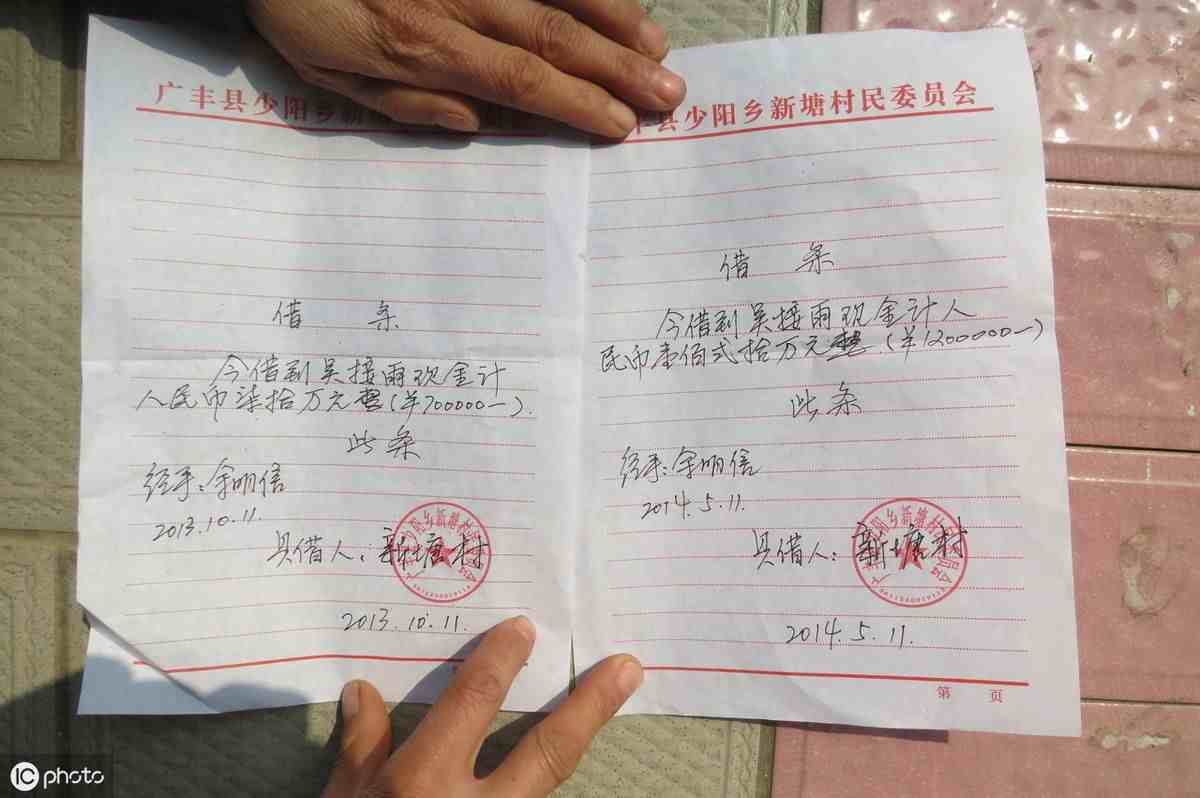 广丰县少阳乡新
借 条
今借到吴接雨现金计
人民币柒拾万元整(¥700000一).
此条
经手:余明信
2013.10.11.
具借人:新塘村
2013.10.11.
县少阳乡新塘村民委员会
借 条
今借到吴接雨现金计人
民币壹佰弍拾万元整.(¥1200000一)
此条
经手:余明信
2014.5.11.
具借人:新塘村
2014.5.11.
第 页
IC photo